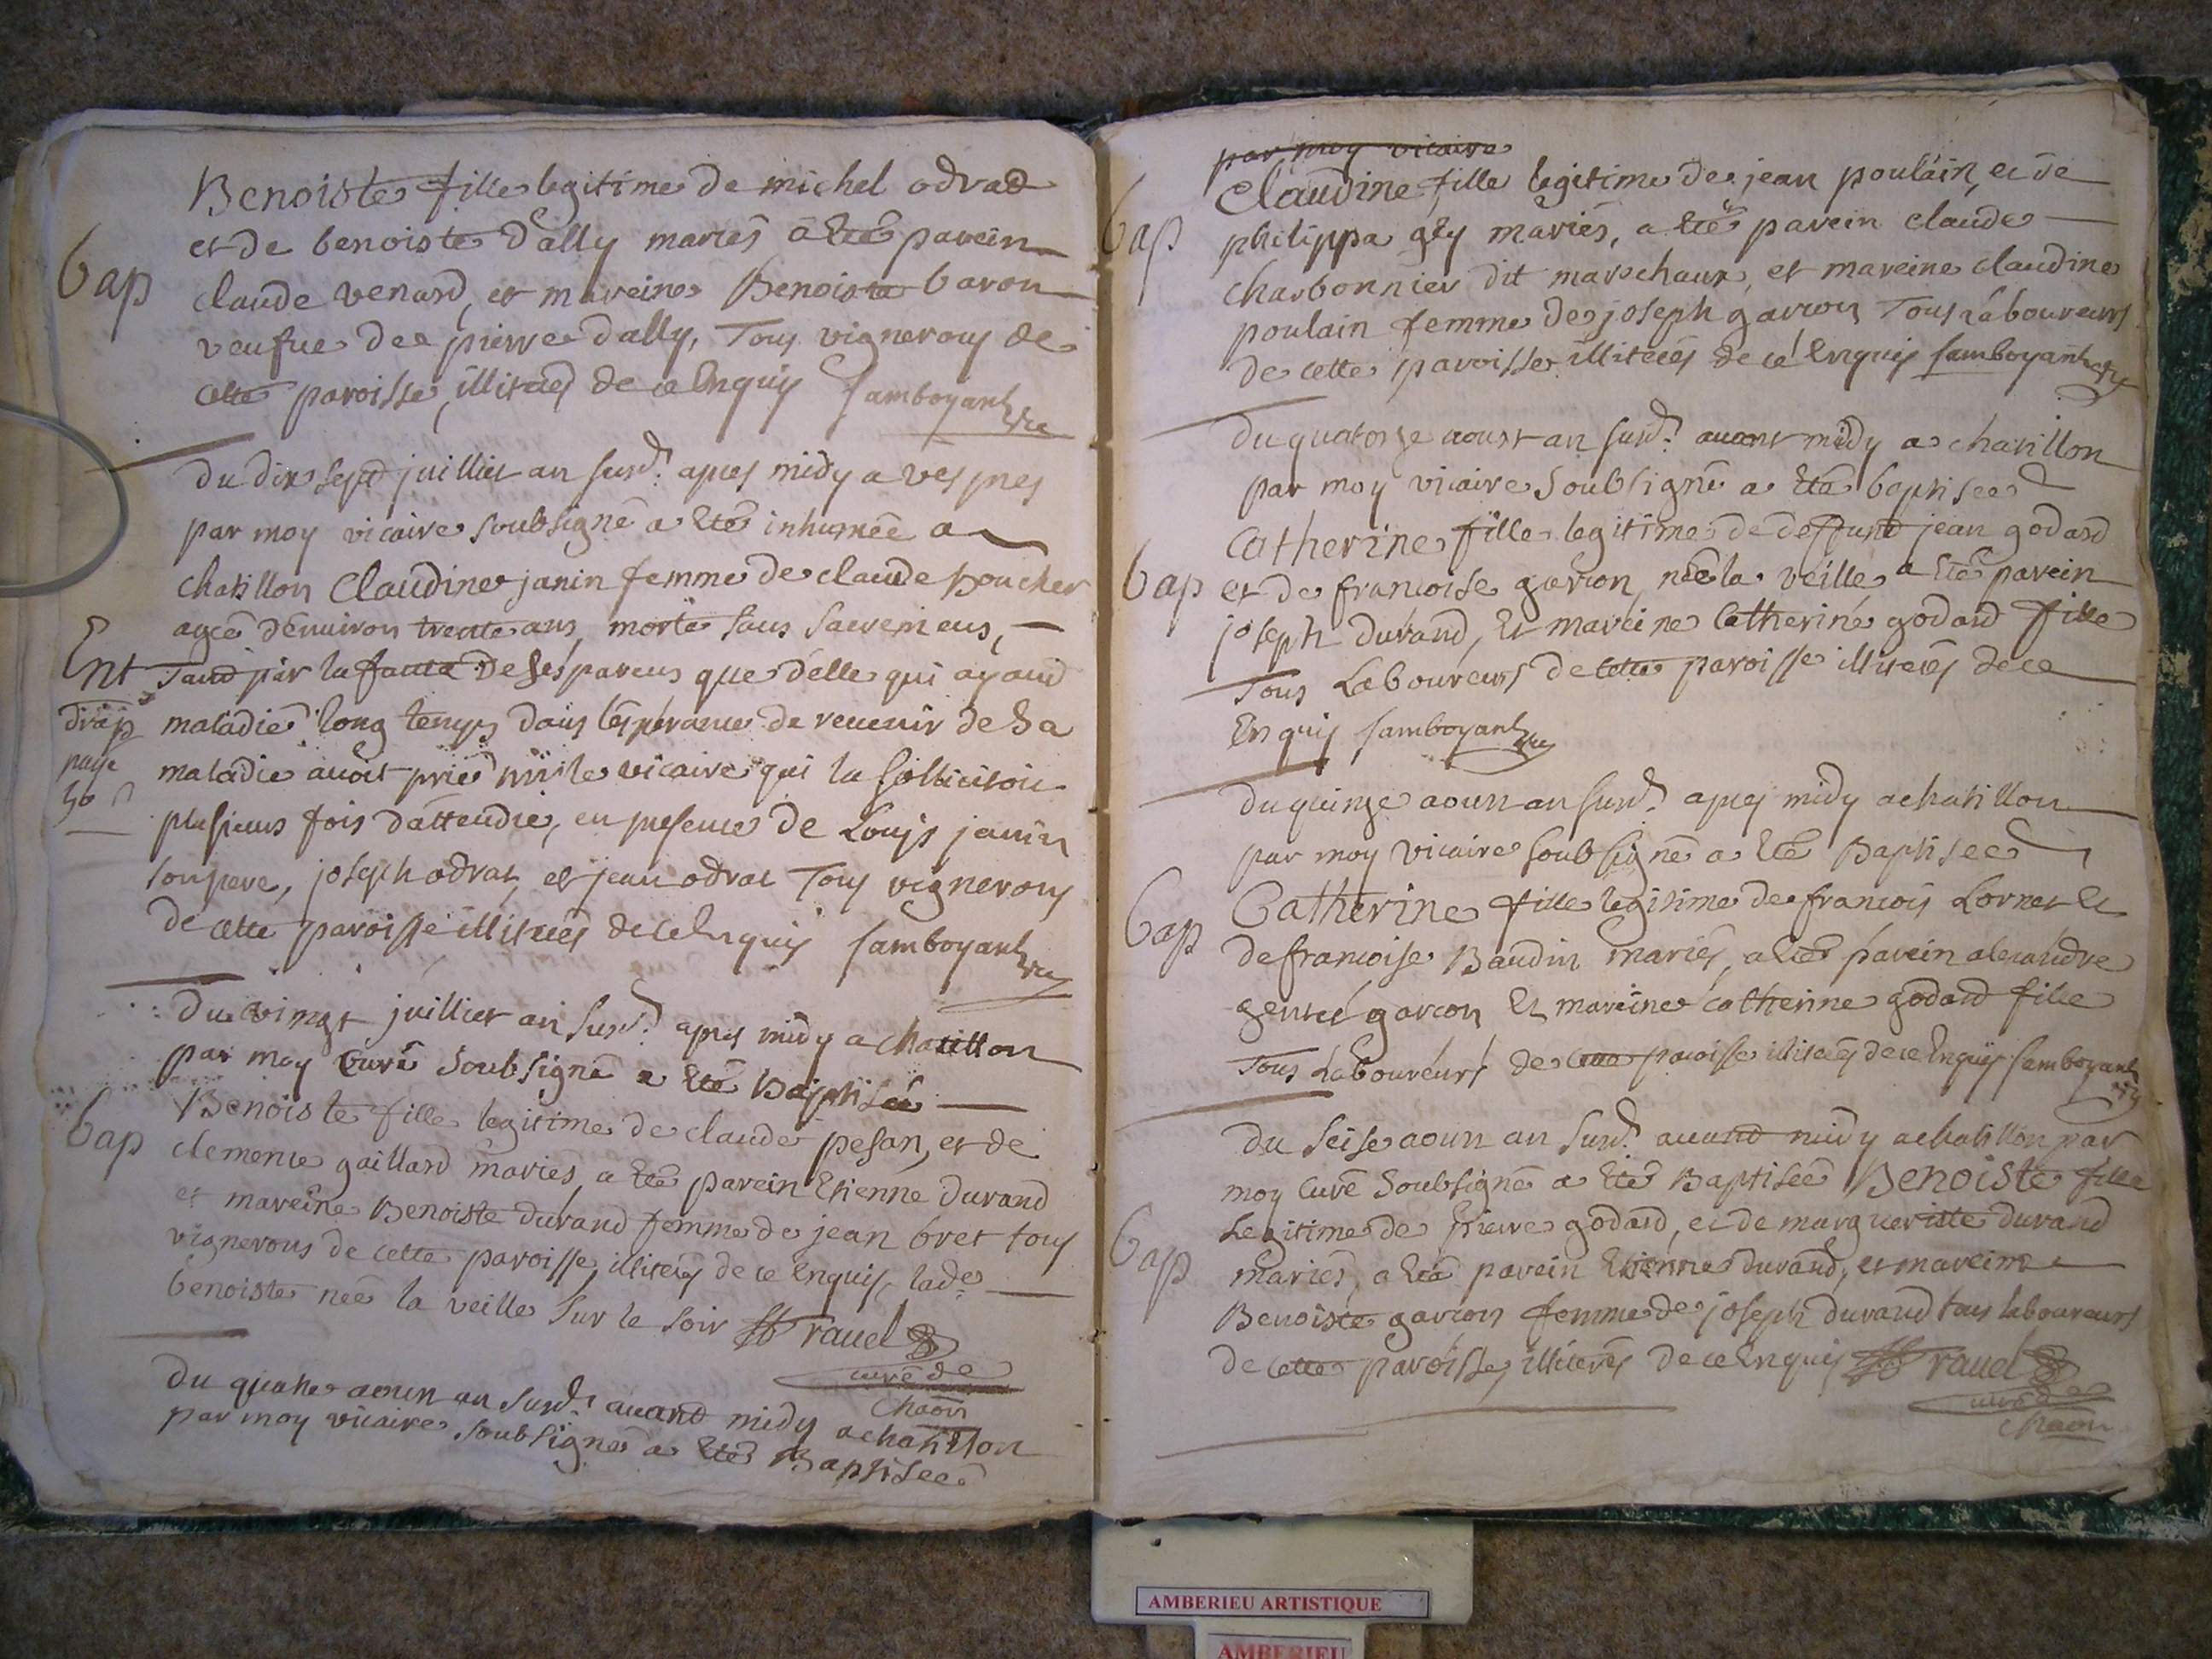 Benoiste fille legitime de michel odrad
et de benoiste d'ally mariés a eté parein
bap
claude venard, et mareine Benoiste baron
veufue de pierre dally, Tous vignerons de
cette paroisse, illiterés de ce Enquis Jamboyant vre
du dix sept juillier an susd. apres midy a vespres
par moy vicaire soubsigné a eté inhumée a
chatillon Claudine janin femme de claude Boucher
agée d'enuiron trente ans, morte sans sacremens,
Ent
Tand par la faute de ses parens que d'elle qui ayand
drap
maladie long temps dans l'esperance de reuenir de sa
paye
maladie auoit prié le vicaire qui la sollicitoit
plusieurs fois d'attendre, en presence de Louys janin
son pere, joseph odrat, et jean odrat Tous vignerons
de cette paroisse illiterés de ce Enquis Jamboyant vre
Du vingt juillier an susd. apres midy a chatillon
par moy Curé Soubsigné a eté Baptisée
Benoiste fille legitime de claude pesan, et de
bap
clemence gaillard mariés, a eté parein Etienne durand
et mareine Benoiste durand femme de jean bret tous
vignerons de cette paroisse, illiterés de ce Enquis, lade
benoiste née la veille sur le soir rauel
curé de
chaõn
Du quatre aoun an susd. auand midy a chatillon
par moy vicaire soubsigné a eté Baptisée
par moy vicaire
Claudine fille legitime de jean poulain, et de
bap
philippa gey mariés, a eté parein claude
charbonnier dit marechaux, et mareine claudine
poulain femme de joseph garcon Tous Laboureurs
de cette paroisse illiterés de ce Enquis Jamboyant vre
Du quatorze aoust an susd. auant midy a chatillon
par moy vicaire Soubsigné a eté baptisée
Catherine fille legitime de deffund jean godard
bap
et de francoise garcon, née la veille a eté parein
joseph durand, Et mareine Catherine godard fille
Tous Laboureurs de cette paroisse illiterés de ce
Enquis Jamboyant vre
Du quinze aoun an susd. apres midy a chatillon
par moy vicaire soubsigné a eté Baptisée
bap
Catherine fille legitime de francois Lornet Et
de francoise Baudin mariés, a eté parein alexandre
gentet garcon Et mareine catherine godard fille
Tous Laboureurs de cette paroisse illiterés de ce Enquis Jamboyant vre
Du seise aoun an susd. auand midy a chatillon par
moy Curé Soubsigné a eté Baptisée Benoiste fille
Legitime de pierre godard, et de marguerite durand
bap
mariés, a eté parein Etienne durand, et mareine
Benoiste garcon femme de joseph durand tous laboureurs
de cette paroisse, illiterés de ce Enquis rauel
curé de
chaõn
AMBERIEU ARTISTIQUE
AMBERIEU